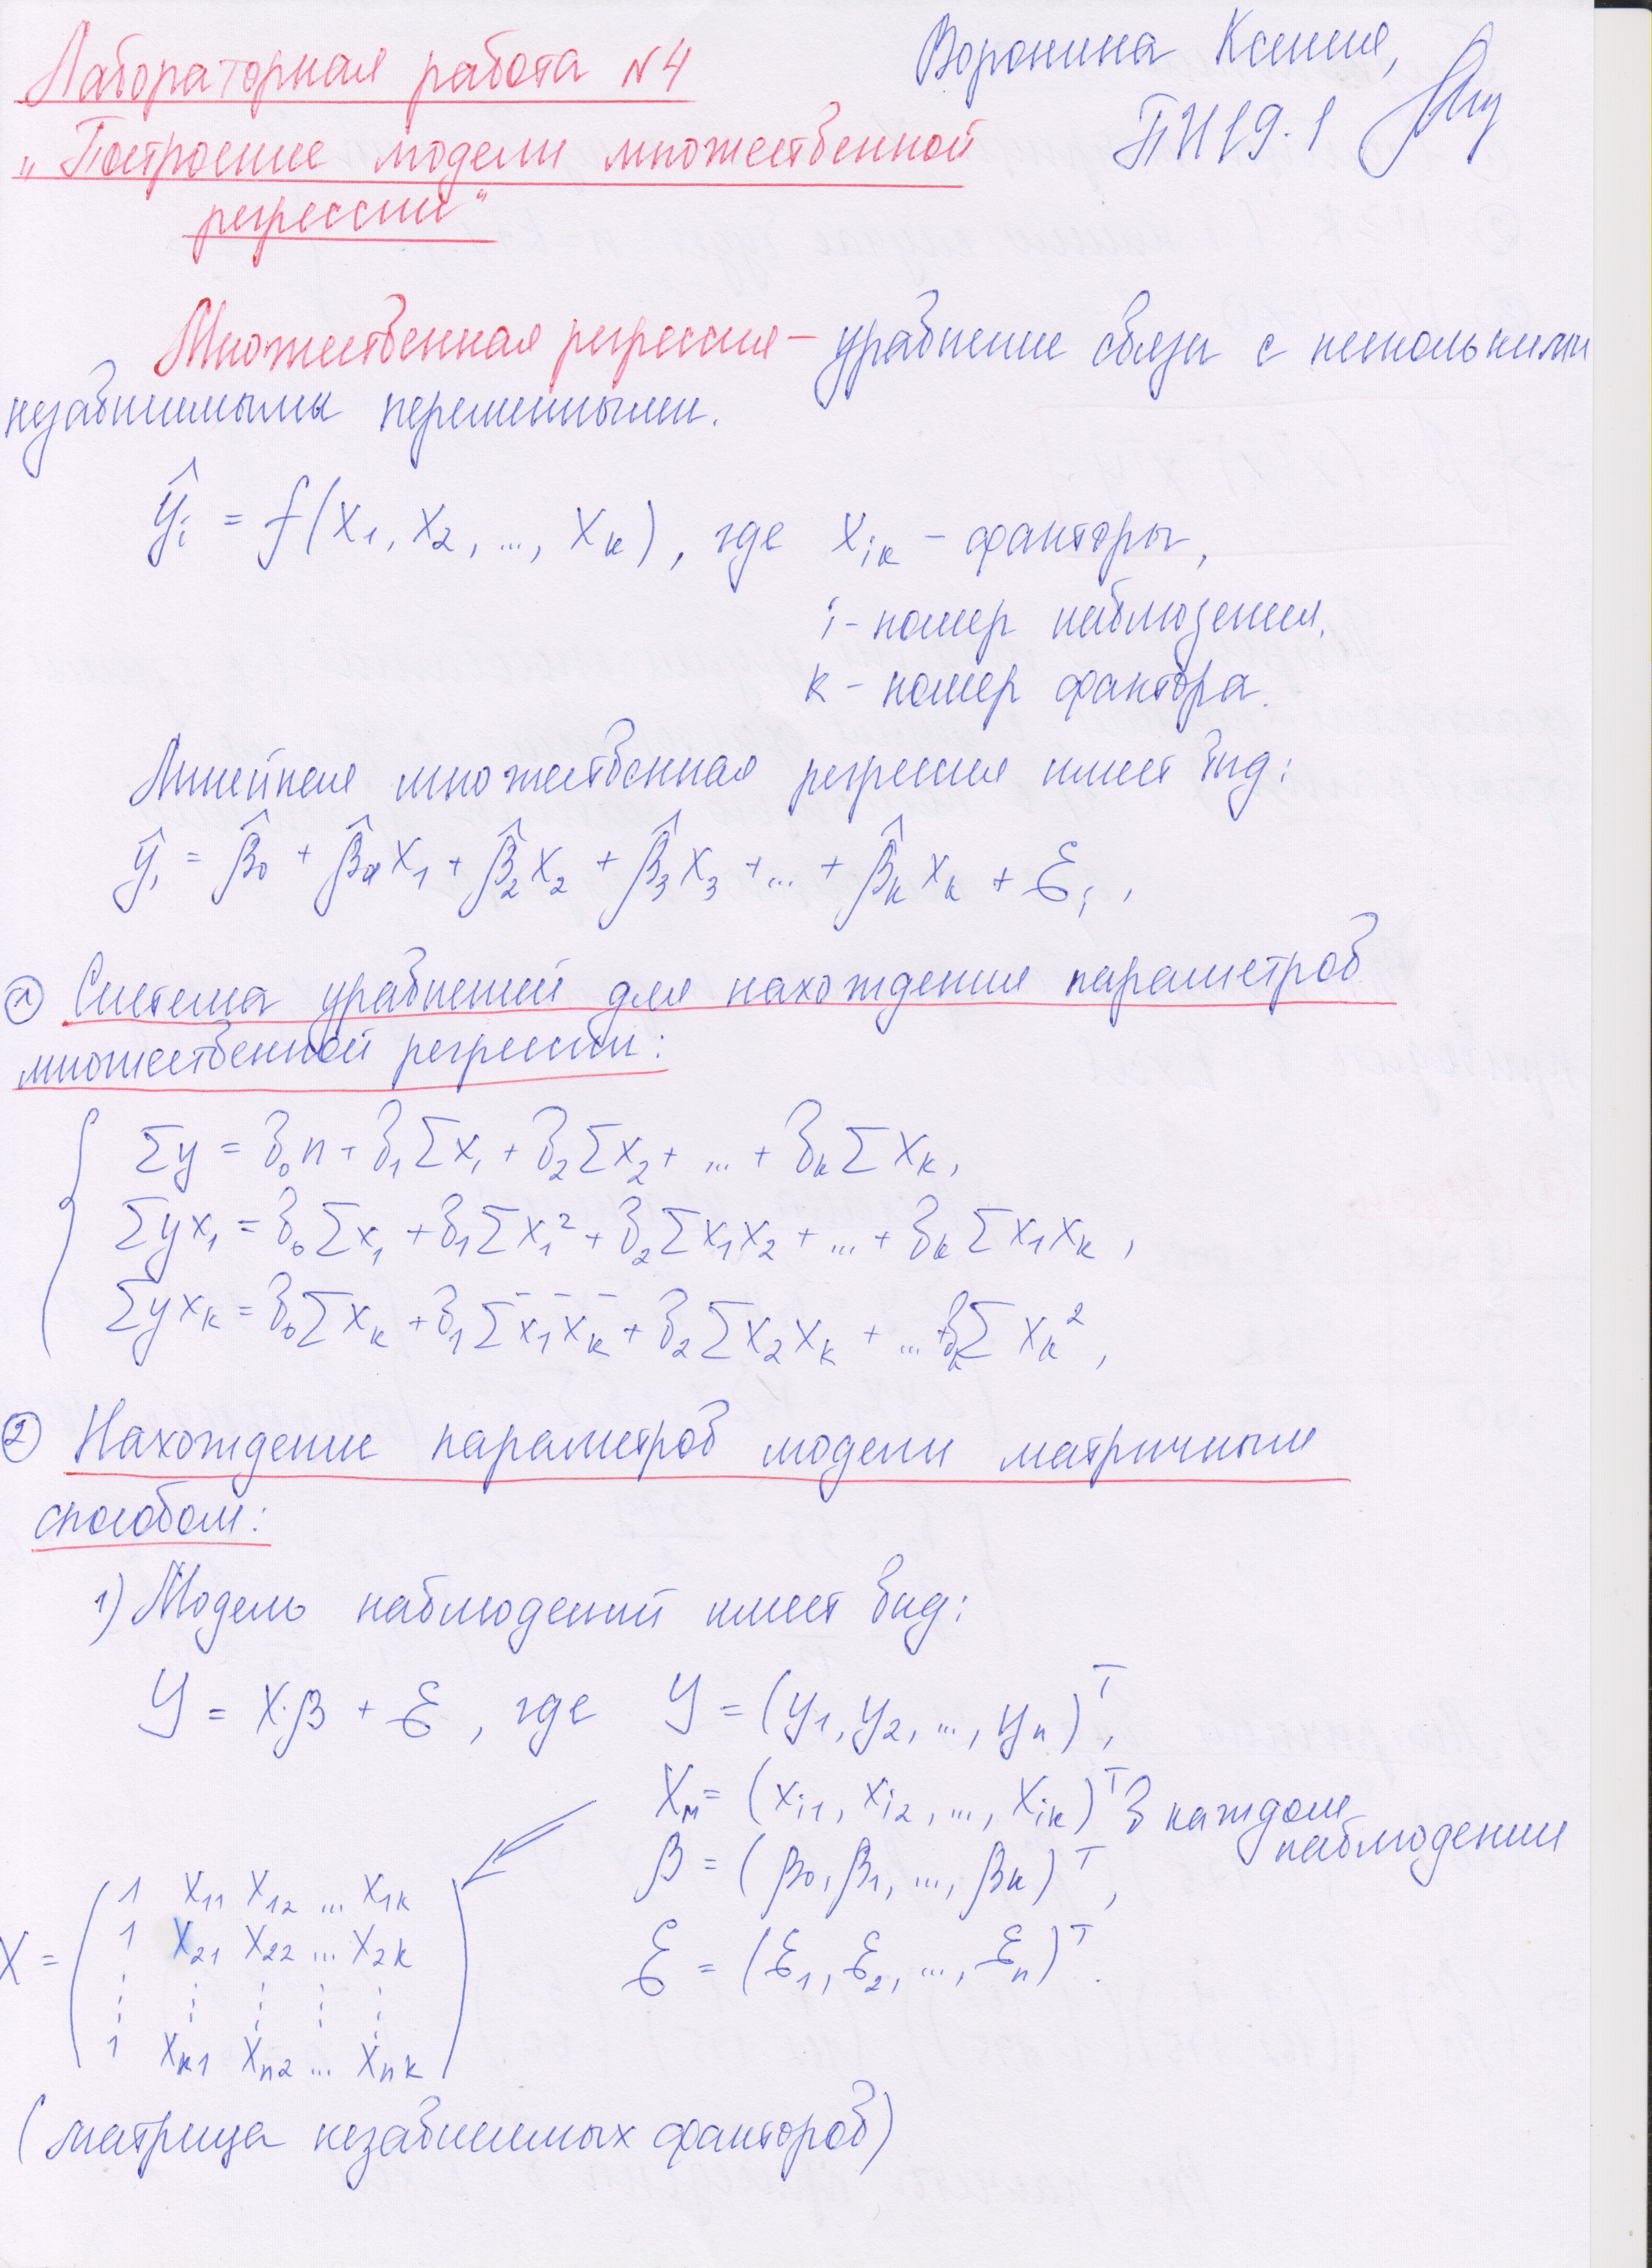 Лабораторная работа №4
Воронина Ксения,
ПИ19-1
„Построение модели множественной
регрессии“
Множественная регрессия – уравнение связи с несколькими
независимыми переменными.
ŷᵢ = f(x₁, x₂, ..., xₖ), где xᵢₖ – факторы,
i – номер наблюдения,
k – номер фактора.
Линейная множественная регрессия имеет вид:
ŷᵢ = β̂₀ + β̂₁x₁ + β̂₂x₂ + β̂₃x₃ + ... + β̂ₖxₖ + εᵢ,
① Система уравнений для нахождения параметров
множественной регрессии:
Σy = b₀n + b₁Σx₁ + b₂Σx₂ + ... + bₖΣxₖ,
Σyx₁ = b₀Σx₁ + b₁Σx₁² + b₂Σx₁x₂ + ... + bₖΣx₁xₖ,
- - -
Σyxₖ = b₀Σxₖ + b₁Σx₁xₖ + b₂Σx₂xₖ + ... + bₖΣxₖ²,
② Нахождение параметров модели матричным
способом:
1) Модель наблюдений имеет вид:
Y = X·β + ε, где Y = (y₁, y₂, ..., yₙ)ᵀ,
Xм = (xᵢ₁, xᵢ₂, ..., xᵢₖ)ᵀ в каждом
наблюдении
β = (β₀, β₁, ..., βₖ)ᵀ,
ε = (ε₁, ε₂, ..., εₙ)ᵀ.
1 x₁₁ x₁₂ ... x₁ₖ
X = 1 x₂₁ x₂₂ ... x₂ₖ
⋮ ⋮ ⋮ ⋮ ⋮
1 xₙ₁ xₙ₂ ... xₙₖ
(матрица независимых факторов)